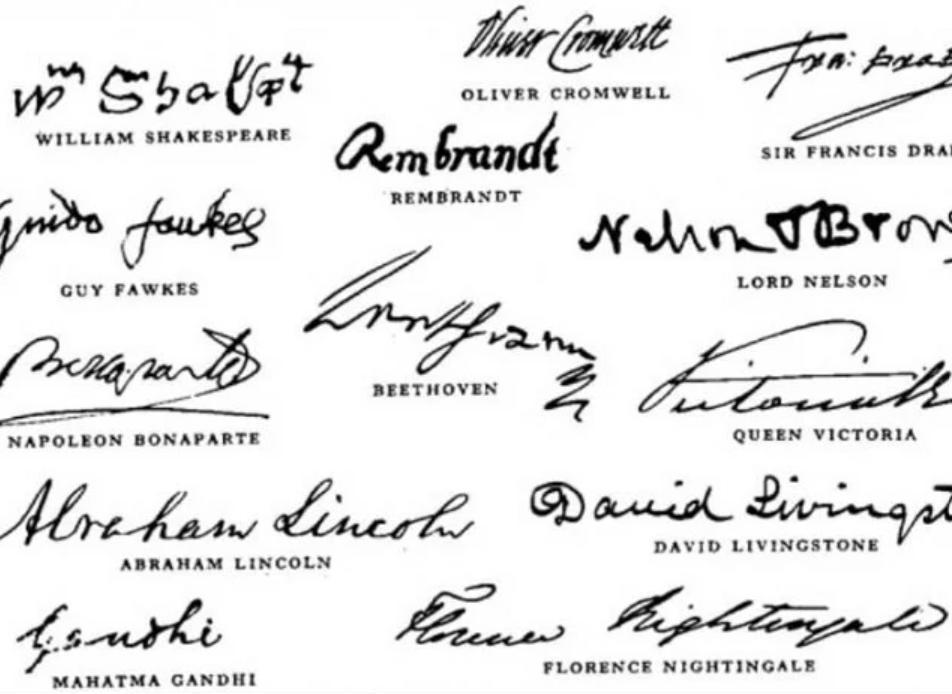 Oliver Cromwell
OLIVER CROMWELL
Wm Shakspt
WILLIAM SHAKESPEARE
Fra: Drak
SIR FRANCIS DRA
Rembrandt
REMBRANDT
Guido fawkes
GUY FAWKES
Nelson & Bron
LORD NELSON
BEETHOVEN
Bonaparte
NAPOLEON BONAPARTE
Victoria
QUEEN VICTORIA
Abraham Lincoln
ABRAHAM LINCOLN
David Livingst
DAVID LIVINGSTONE
Gandhi
MAHATMA GANDHI
Florence Nightingale
FLORENCE NIGHTINGALE